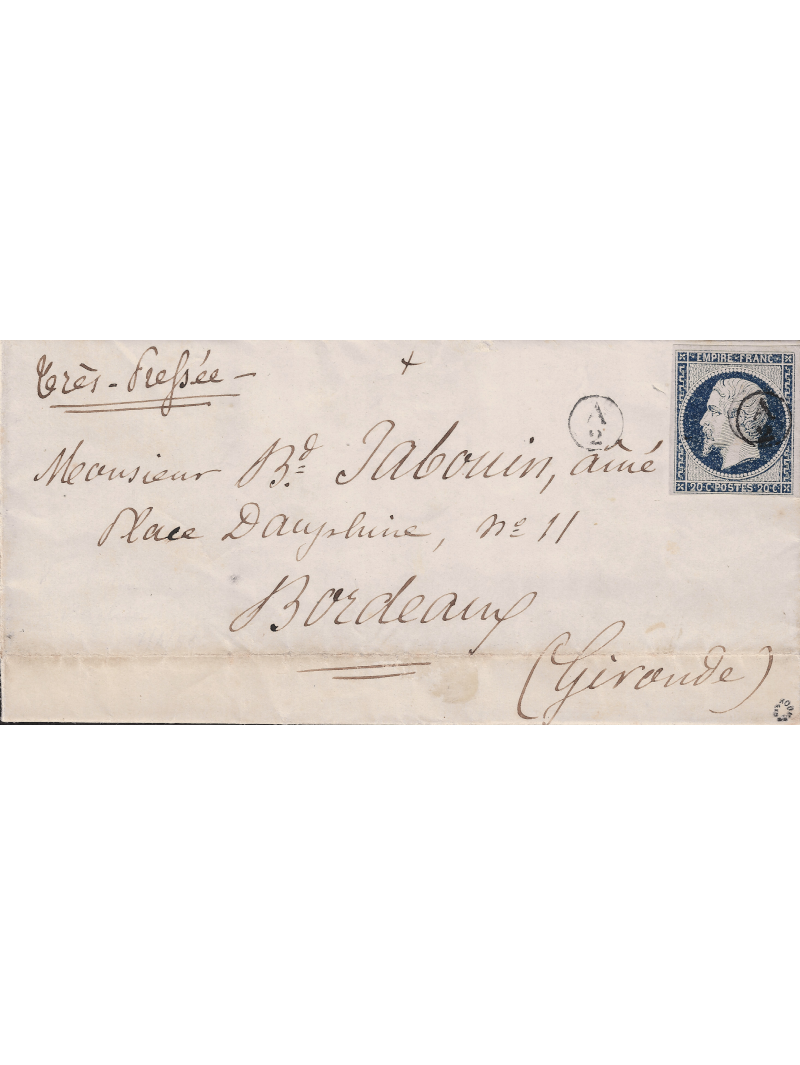 très - Pressée -
A
2
EMPIRE FRANC
Monsieur Bd. Jabouin, aîné
20·C·POSTES·20·C
Place Dauphine, no 11
Bordeaux
(Gironde)